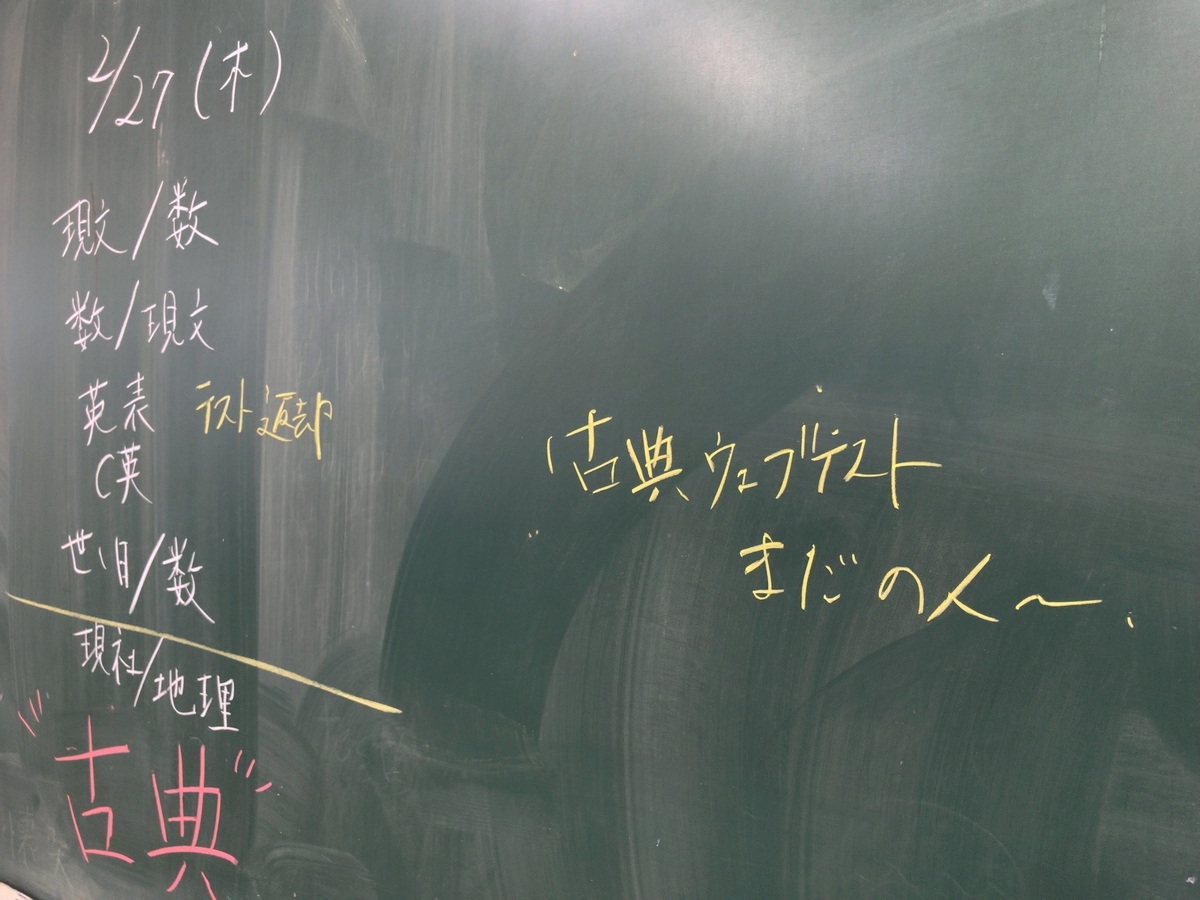 2/27(木)
現文/数
数/現文
英表 テスト返却
C英
世い日/数
現社/地理
古典
古典ウェブテスト
まだの人〜